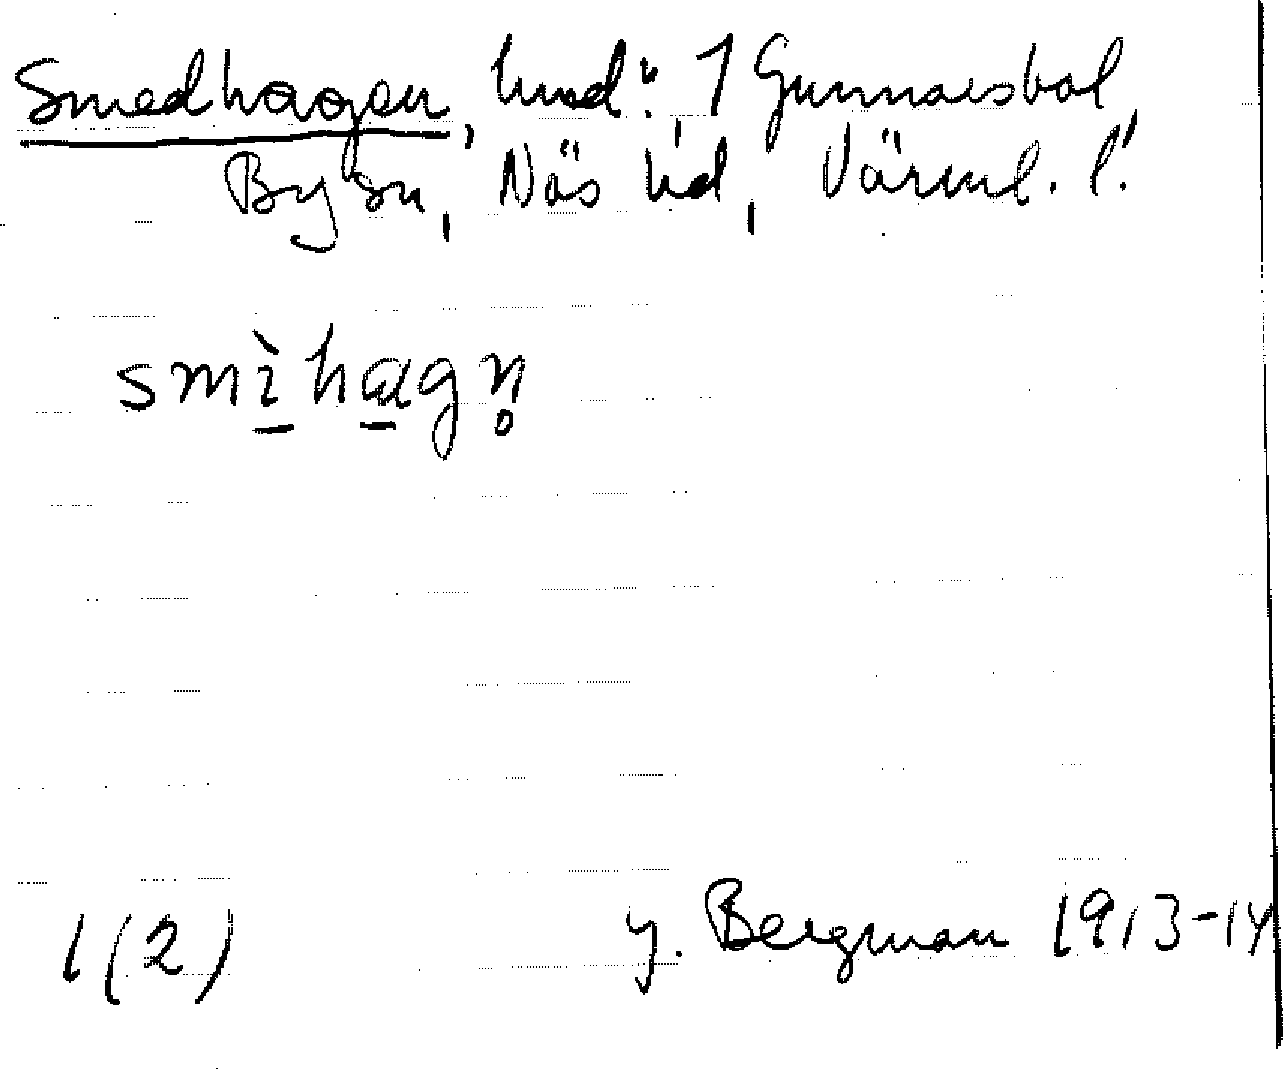 Smedhagen, hmd: 1 Gunnarsbol,
By sn, Näs hd, Värml. l.
smìhagn̥
1(2) G. Bergman 1913-14